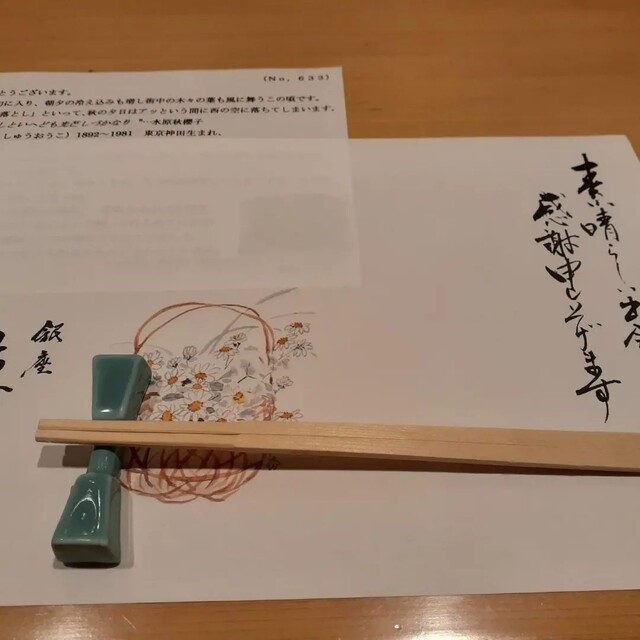 (No, 633)
とうございます。
に入り、朝夕の冷え込みも増し街中の木々の葉も風に舞うこの頃です。
落とし」といって、秋の夕日はアッという間に西の空に落ちてしまいます。
水原秋櫻子
しゅうおうこ) 1892～1981 東京神田生まれ、
素晴らしい
感謝申し上げます
銀座